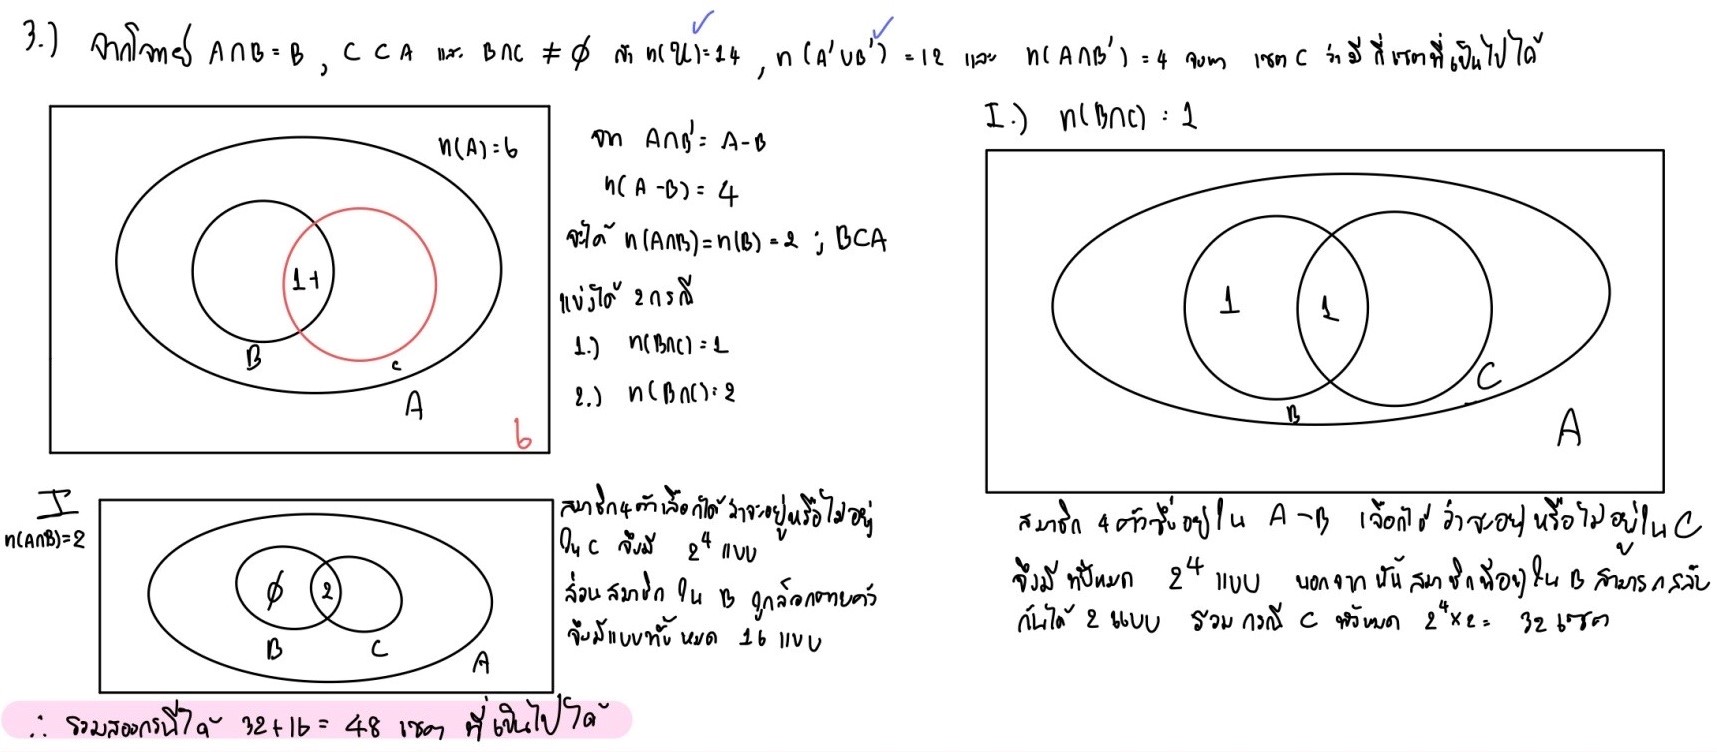 3.) จากโจทย์ A∩B = B , C ⊂ A และ B∩C ≠ ∅ ถ้า n(U) = 14 , n(A'∪B') = 12 และ n(A∩B') = 4 จงหา เซต C ว่ามี กี่เซตที่เป็นไปได้
n(A) = 6
1+
B
C
A
6
จาก A∩B' = A-B
n(A-B) = 4
จะได้ n(A∩B) = n(B) = 2 ; B⊂A
แบ่งได้ 2 กรณี
1.) n(B∩C) = 1
2.) n(B∩C) = 2
I.) n(B∩C) : 1
1
1
B
C
A
สมาชิก 4 ตัวซึ่งอยู่ใน A-B เลือกได้ ว่าจะอยู่ หรือไม่อยู่ใน C
จึงมี ทั้งหมด 2⁴ แบบ นอกจากนั้น สมาชิกที่อยู่ใน B สามารถสลับ
กันได้ 2 แบบ รวมกรณี C ทั้งหมด 2⁴×2 = 32 เซต
I
n(A∩B)=2
∅
2
B
C
A
สมาชิก 4 ตัว เลือกได้ว่าจะอยู่หรือไม่อยู่
ใน C จึงมี 2⁴ แบบ
ส่วนสมาชิก ใน B ถูกล็อกตายตัว
จึงมีแบบทั้งหมด 16 แบบ
∴ รวมสองกรณีได้ 32+16 = 48 เซต ที่เป็นไปได้